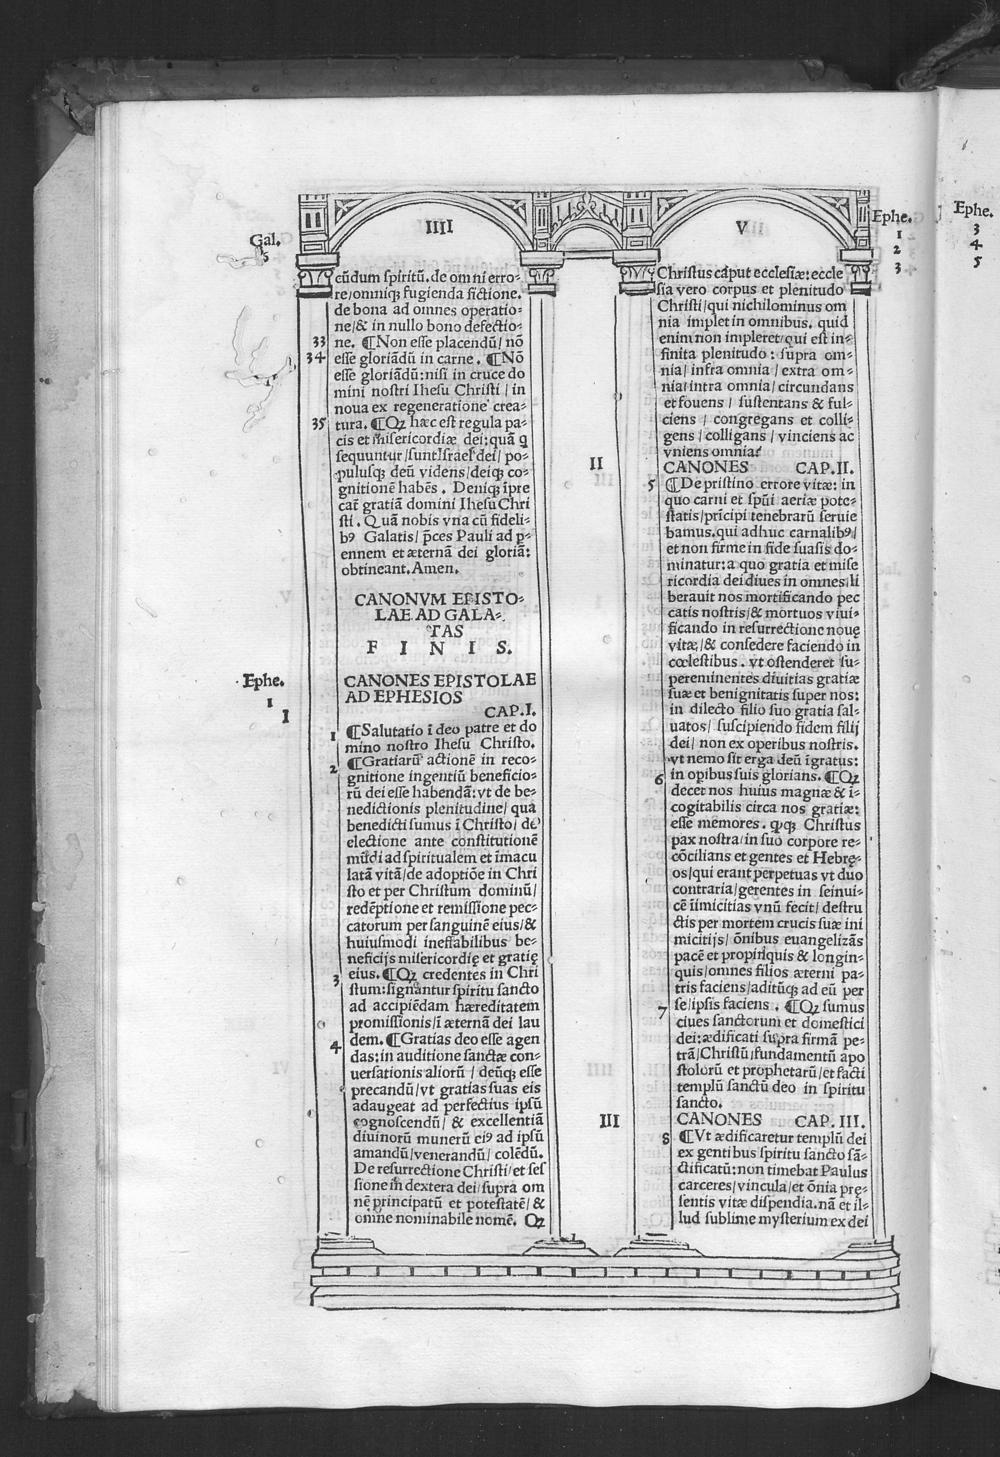 IIII
Gal.
6
cūdum spiritū.de omni erro⸗
re/omniqꝫ fugienda fictione.
de bona ad omnes operatio⸗
ne/& in nullo bono defectio⸗
33 ne. ¶Non esse placendū/ nō
34 esse gloriādū in carne. ¶Nō
esse gloriādū: nisi in cruce do
mini nostri Ihesu Christi / in
noua ex regeneratione crea⸗
35 tura. ¶Qꝫ hæc est regula pa⸗
cis et misericordiæ dei: quā q
sequuntur/sunt Israel dei/ po⸗
pulusqꝫ deū videns/deiqꝫ co⸗
gnitionē habēs. Deniqꝫ īpre
cat gratiā domini Ihesu Chri
sti. Quā nobis vna cū fideli⸗
bꝰ Galatis/ p̄ces Pauli ad p̱⸗
ennem et æternā dei gloriā:
obtineant. Amen.
CANONVM EPISTO⸗
LAE AD GALA⸗
TAS
F I N I S.
Ephe.
1
CANONES EPISTOLAE
AD EPHESIOS
I CAP.I.
1 ¶Salutatio ī deo patre et do
mino nostro Ihesu Christo.
2 ¶Gratiarū actionē in reco⸗
gnitione ingentiū beneficio⸗
rū dei esse habendā: vt de be⸗
nedictionis plenitudine/ qua
benedicti sumus ī Christo/ de
electione ante constitutionē
mūdi ad spiritualem et īmacu
latā vitā/de adoptiōe in Chri
sto et per Christum dominū/
redēptione et remissione pec⸗
catorum per sanguinē eius/&
huiusmodi ineffabilibus be⸗
neficijs misericordię et gratię
3 eius. ¶Qꝫ credentes in Chri
stum: signantur spiritu sancto
ad accipiēdam hæreditatem
promissionis/ī æternā dei lau
4 dem. ¶Gratias deo esse agen
das: in auditione sanctæ con⸗
uersationis aliorū / deūqꝫ esse
precandū/vt gratias suas eis
adaugeat ad perfectius ipsū
cognoscendū/ & excellentiā
diuinorū munerū eiꝰ ad ipsū
amandū/venerandū/ colēdū.
De resurrectione Christi/et ses
sione in dextera dei/supra om
nē principatū et potestatē/ &
omne nominabile nomē. Qꝫ
V
Ephe.
1
2
3
Christus caput ecclesiæ: eccle
sia vero corpus et plenitudo
Christi/qui nichilominus om
nia implet in omnibus. quid
enim non impleret/qui est in⸗
finita plenitudo : supra om⸗
nia/ infra omnia / extra om⸗
nia/intra omnia/ circundans
et fouens / sustentans & ful⸗
ciens / congregans et colli⸗
gens / colligans / vinciens ac
vniens omnia?
II CANONES CAP.II.
5 ¶De pristino errore vitæ: in
quo carni et spūi aeriæ pote⸗
statis/prīcipi tenebrarū seruie
bamus. qui adhuc carnalibꝰ/
et non firme in fide suasis do⸗
minatur: a quo gratia et mise
ricordia dei diues in omnes: li
berauit nos mortificando pec
catis nostris/& mortuos viui⸗
ficando in resurrectione nouę
vitæ/& consedere faciendo in
cœlestibus. vt ostenderet su⸗
pereminentes diuitias gratiæ
suæ et benignitatis super nos:
in dilecto filio suo gratia sal⸗
uatos/ suscipiendo fidem filij
dei/ non ex operibus nostris.
vt nemo sit erga deū īgratus:
6 in opibus suis glorians. ¶Qꝫ
decet nos huius magnæ & ī⸗
cogitabilis circa nos gratiæ:
esse memores. qꝫqꝫ Christus
pax nostra/in suo corpore re⸗
cōcilians et gentes et Hebrę⸗
os/qui erant perpetuas vt duo
contraria/gerentes in seinui⸗
cē īimicitias vnū fecit/ destru
ctis per mortem crucis suæ ini
micitijs/ ōnibus euangelizās
pacē et propīquis & longin⸗
quis/omnes filios æterni pa⸗
tris faciens/aditūqꝫ ad eū per
7 se/ipsis faciens. ¶Qꝫ sumus
ciues sanctorum et domestici
dei: ædificati supra firmā pe⸗
trā/Christū/fundamentū apo
stolorū et prophetarū/et facti
templū sanctū deo in spiritu
sancto.
III CANONES CAP.III.
8 ¶Vt ædificaretur templū dei
ex gentibus spiritu sancto sā⸗
ctificatū: non timebat Paulus
carceres/vincula/et ōnia prę⸗
sentis vitæ dispendia. nā et il⸗
lud sublime mysterium ex dei
Ephe.
3
4
5